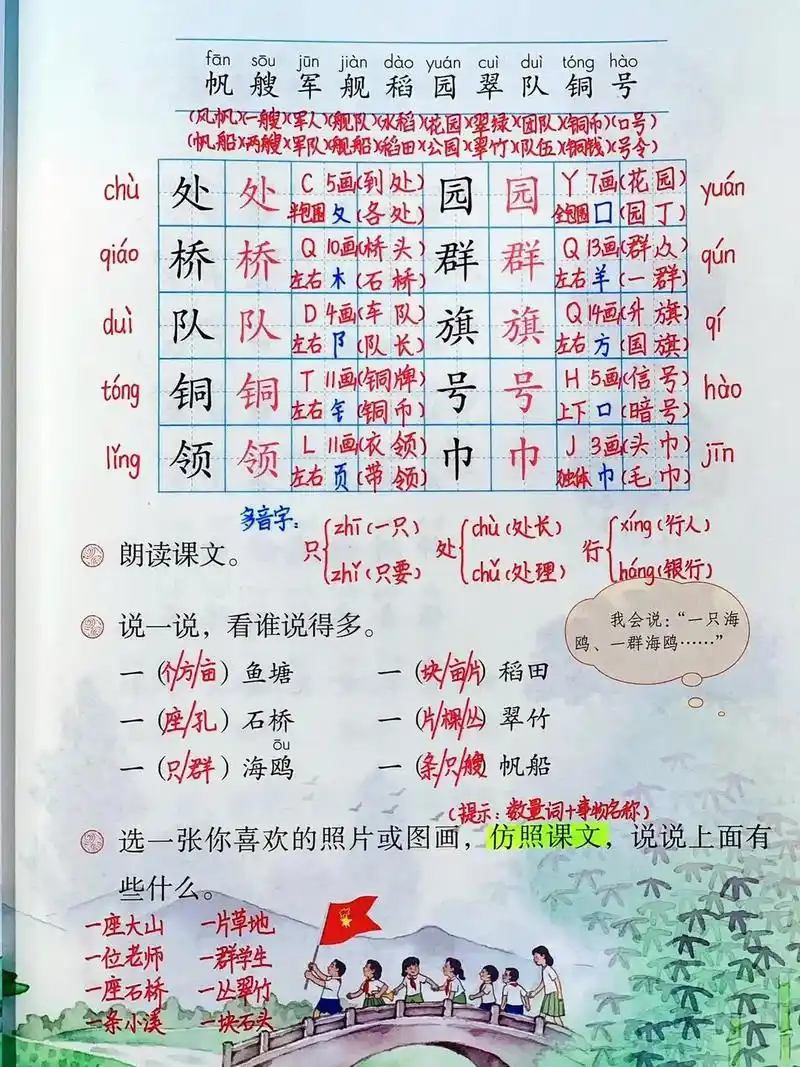 fān sōu jūn jiàn dào yuán cuì duì tóng hào
帆 艘 军 舰 稻 园 翠 队 铜 号
(风帆)(一艘)(军人)(舰队)(水稻)(花园)(翠绿)(团队)(铜币)(口号)
(帆船)(两艘)(军队)(舰船)(稻田)(公园)(翠竹)(队伍)(铜钱)(号令)
chù 处 处 C 5画(到处) 园 园 Y 7画(花园) yuán
半包围 夂 (各处) 全包围 囗 (园丁)
qiáo 桥 桥 Q 10画(桥头) 群 群 Q 13画(群众) qún
左右 木 (石桥) 左右 羊 (一群)
duì 队 队 D 4画(车队) 旗 旗 Q 14画(升旗) qí
左右 阝 (队长) 左右 方 (国旗)
tóng 铜 铜 T 11画(铜牌) 号 号 H 5画(信号) hào
左右 钅 (铜币) 上下 口 (暗号)
lǐng 领 领 L 11画(衣领) 巾 巾 J 3画(头巾) jīn
左右 页 (带领) 独体 巾 (毛巾)
多音字:
朗读课文。
只 zhī(一只) 处 chù(处长) 行 xíng(行人)
zhǐ(只要) chǔ(处理) háng(银行)
说一说，看谁说得多。
我会说：“一只海
鸥、一群海鸥……”
一(个/方/亩)鱼塘 一(块/亩/片)稻田
一(座/孔)石桥 一(片/棵/丛)翠竹
ōu
一(只/群)海鸥 一(条/只/艘)帆船
(提示：数量词+事物名称)
选一张你喜欢的照片或图画，仿照课文，说说上面有
些什么。
一座大山 一片草地
一位老师 一群学生
一座石桥 一丛翠竹
一条小溪 一块石头